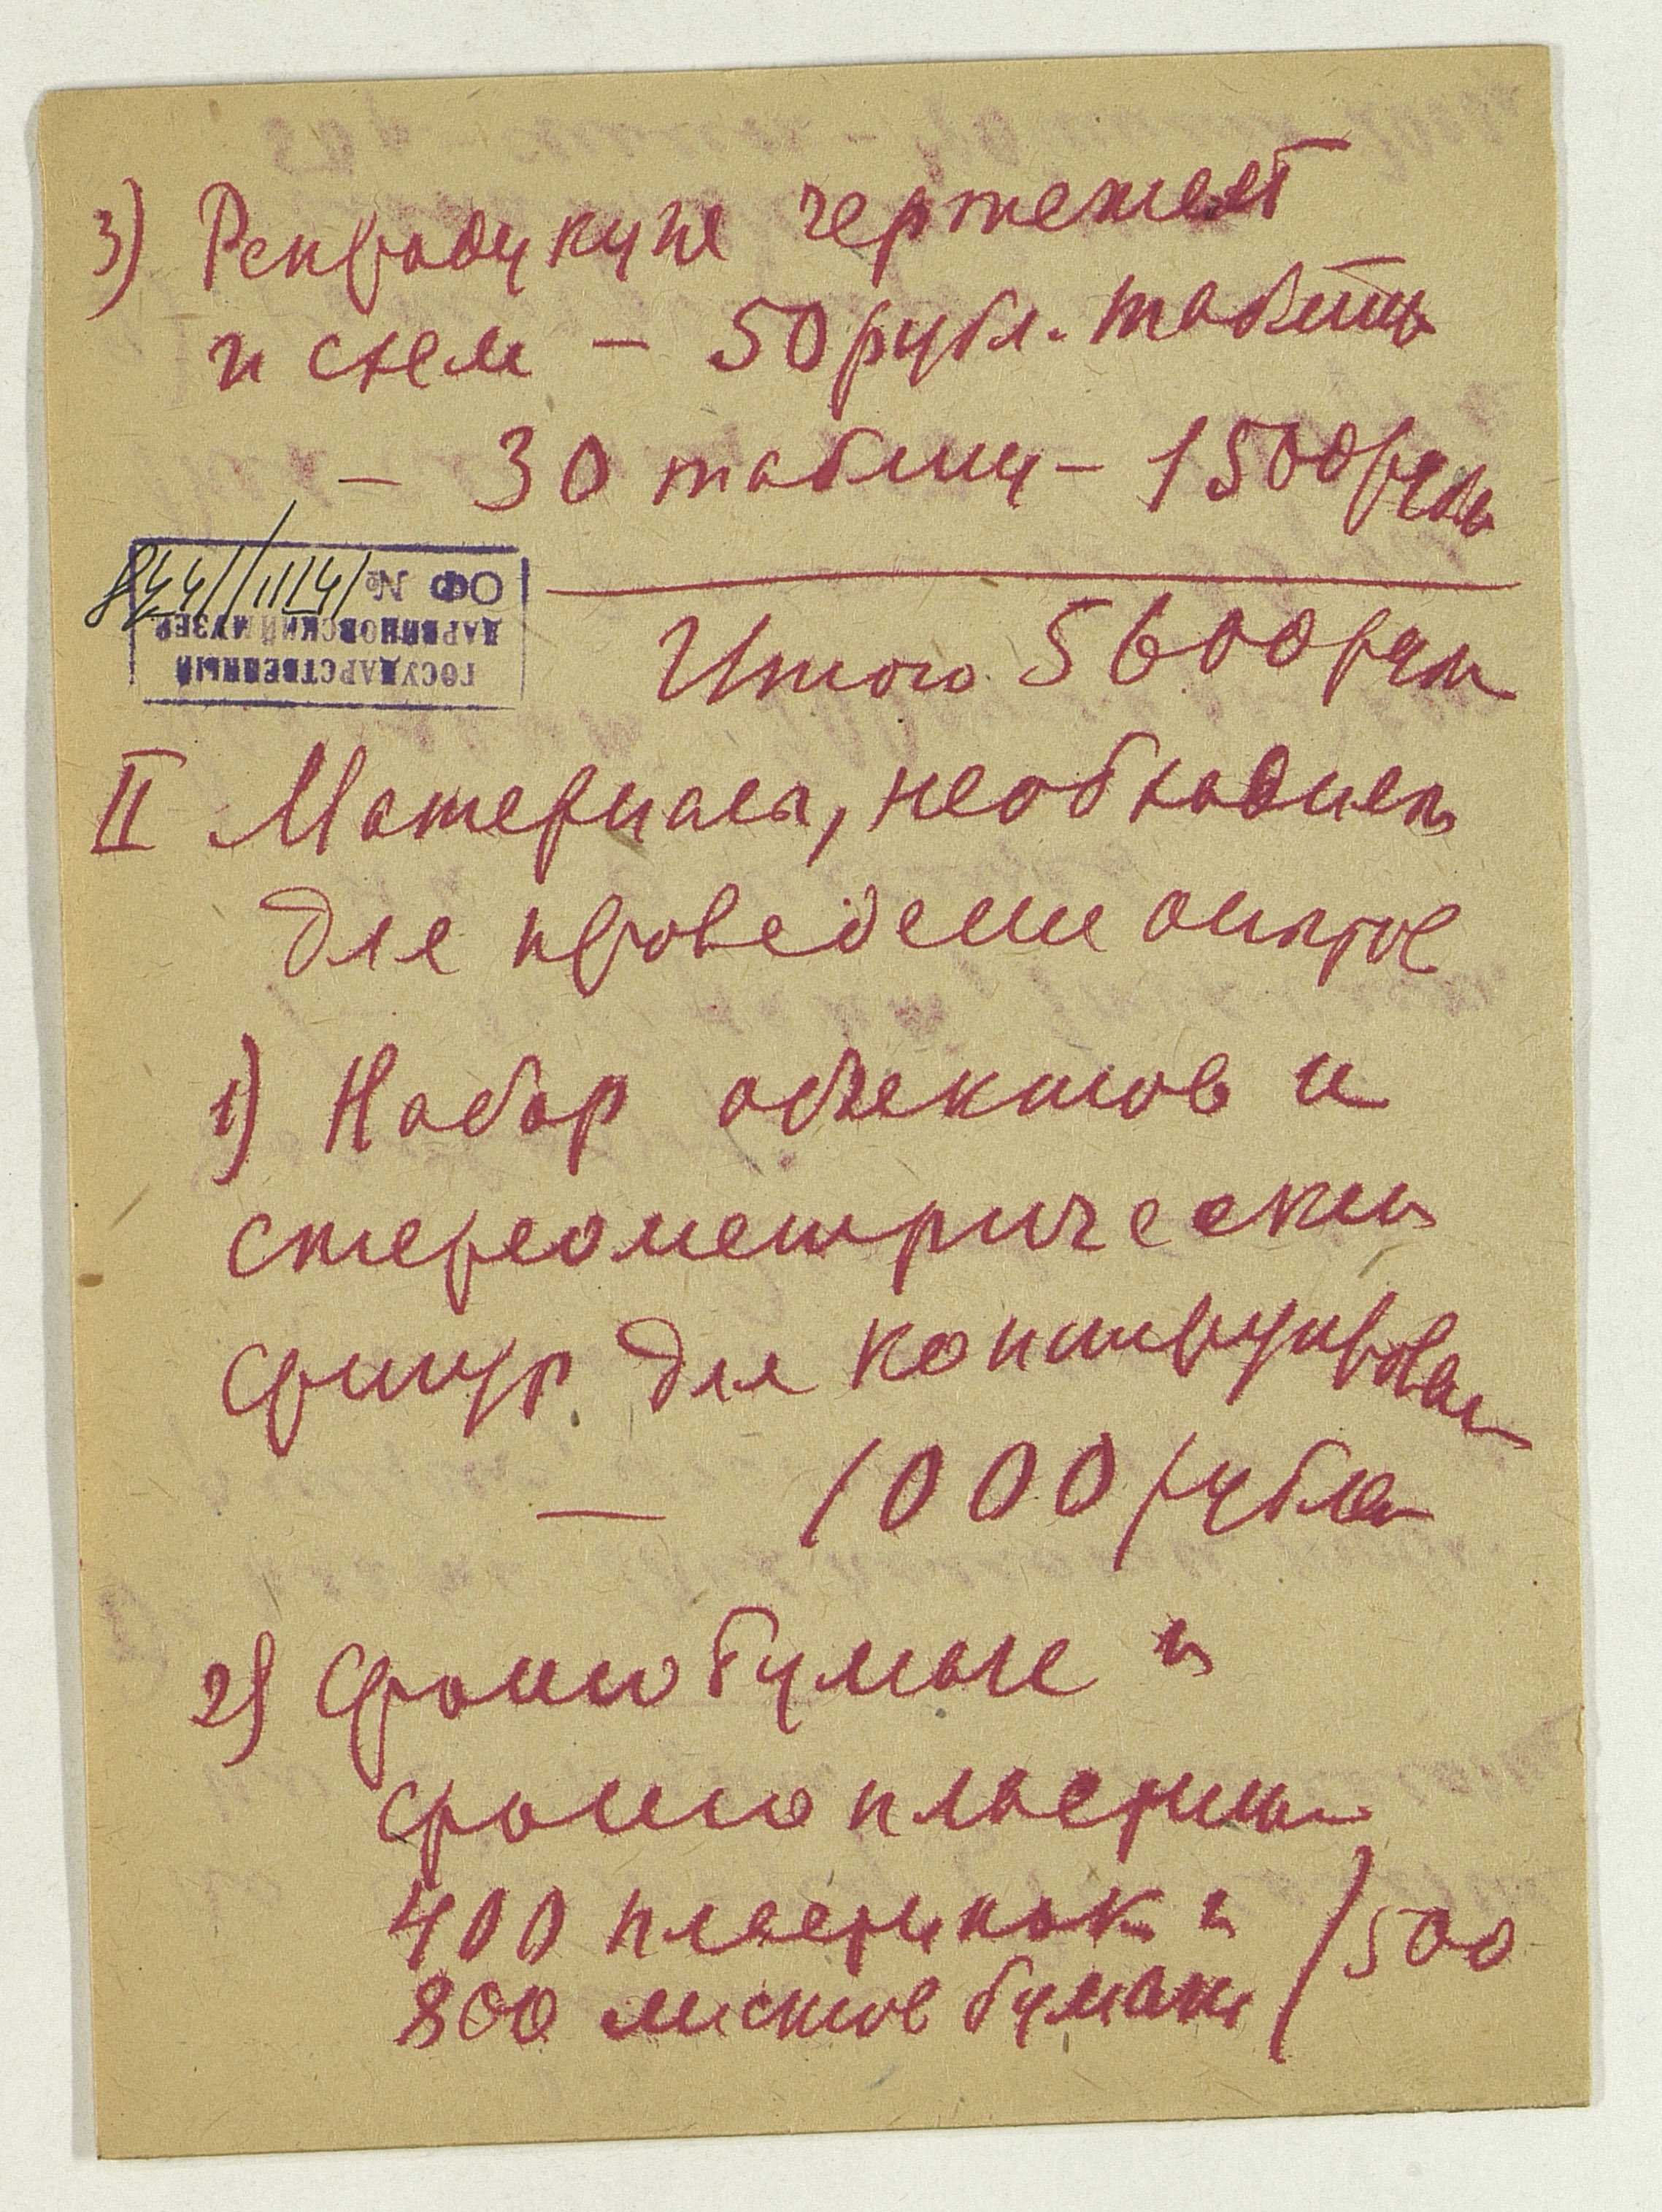 3) Репродукция чертежей
и схем — 50 рубл. таблица
— 30 таблиц — 1500 рубл
ОФ №
ДАРВИНОВСКИЙ МУЗЕЙ
ГОСУДАРСТВЕННЫЙ
Итого 5600 рубл
II Материалы, необходимы
для проведения опытов
1) Набор объектов и
стереометрических
фигур для конструирован
— 1000 рублей
2) Фотобумага и
фотопластинки
400 пластинок и
800 листов бумаги / 500